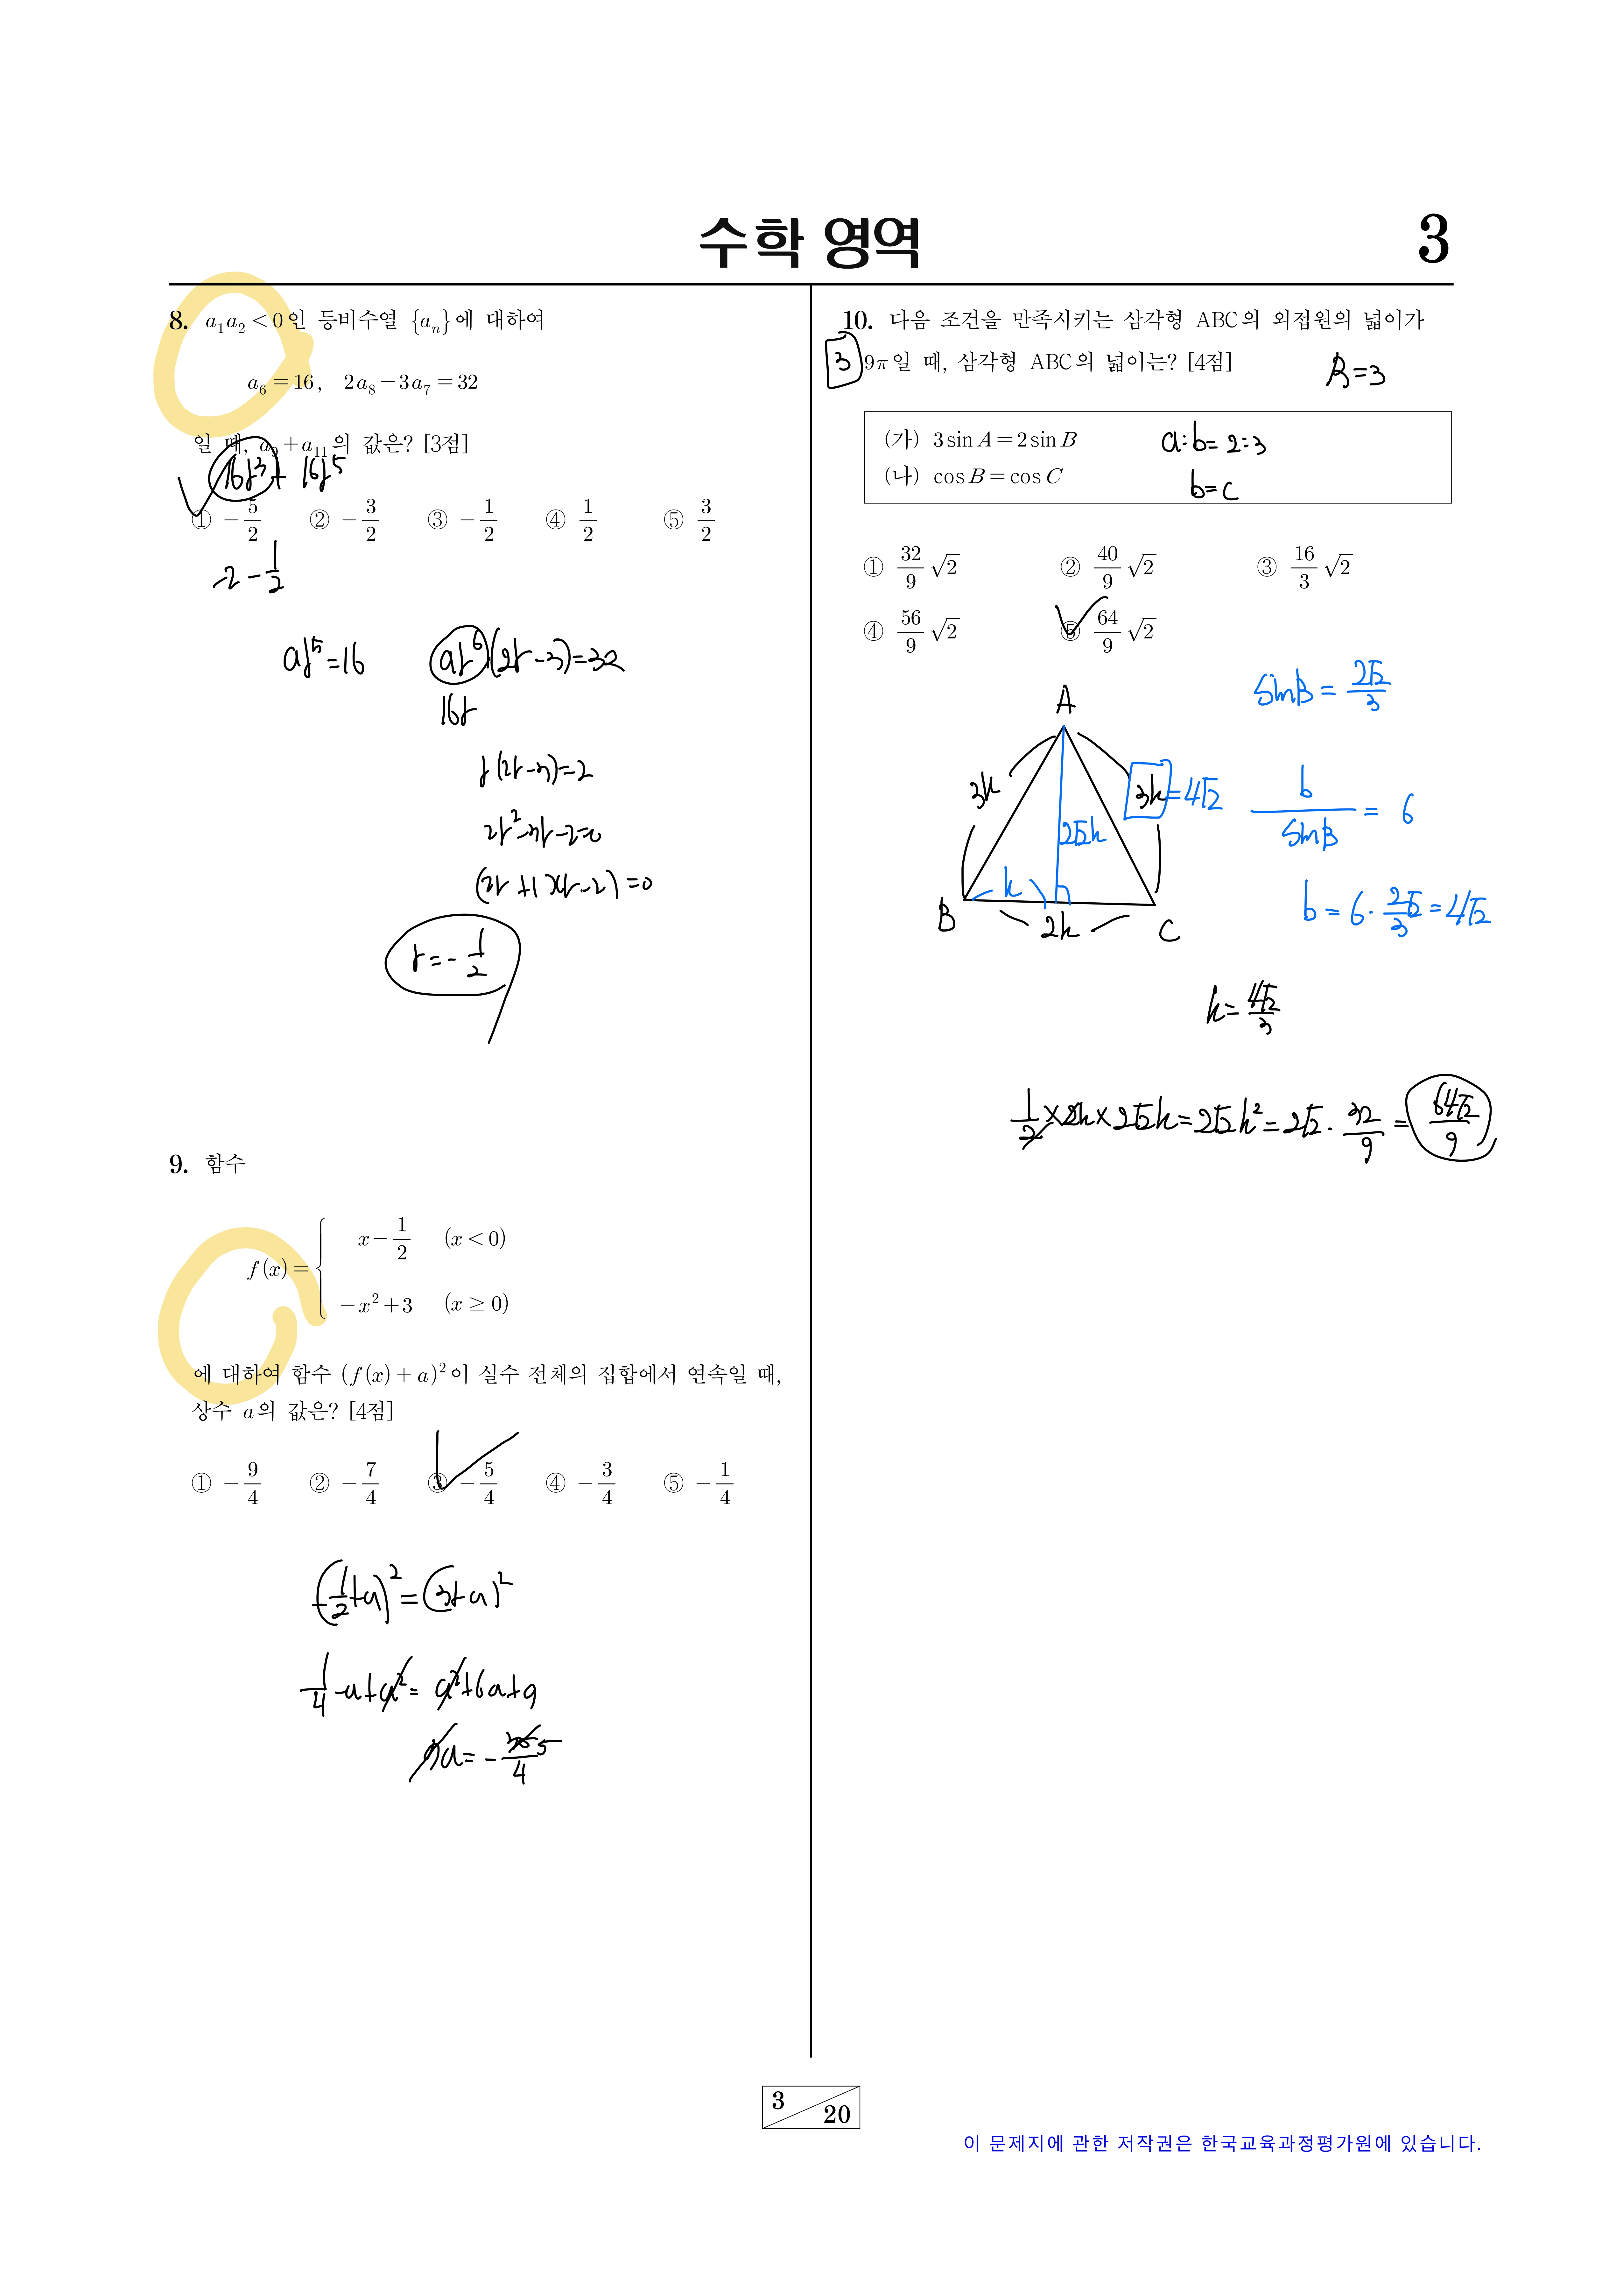 수학 영역
3
8. a₁a₂ < 0인 등비수열 {aₙ}에 대하여
a₆ = 16, 2a₈ − 3a₇ = 32
일 때, a₉ + a₁₁의 값은? [3점]
16r³ + 16r⁵
① −5/2 ② −3/2 ③ −1/2 ④ 1/2 ⑤ 3/2
-2 - 1/2
ar⁵ = 16 ar⁶(2r-3) = 32
16r
r(2r-3) = 2
2r²-3r-2=0
(2r+1)(r-2)=0
r = -1/2
9. 함수
f(x) = { x − 1/2 (x < 0)
−x² + 3 (x ≥ 0)
에 대하여 함수 (f(x) + a)²이 실수 전체의 집합에서 연속일 때,
상수 a의 값은? [4점]
① −9/4 ② −7/4 ③ −5/4 ④ −3/4 ⑤ −1/4
(-1/2+a)² = (3+a)²
1/4 -a+a² = a²+6a+9
7a = -35/4 5
10. 다음 조건을 만족시키는 삼각형 ABC의 외접원의 넓이가
3
9π일 때, 삼각형 ABC의 넓이는? [4점]
R=3
(가) 3sinA = 2sinB a:b=2:3
(나) cosB = cosC b=c
① 32/9 √2 ② 40/9 √2 ③ 16/3 √2
④ 56/9 √2 ⑤ 64/9 √2
sinB = 2√2/3
A
3k
3k = 4√2
b/sinB = 6
2√2k
k
B
2k
C
b = 6 · 2√2/3 = 4√2
k = 4√2/3
1/2 × 2k × 2√2k = 2√2k² = 2√2 · 32/9 = 64√2/9
3
20
이 문제지에 관한 저작권은 한국교육과정평가원에 있습니다.